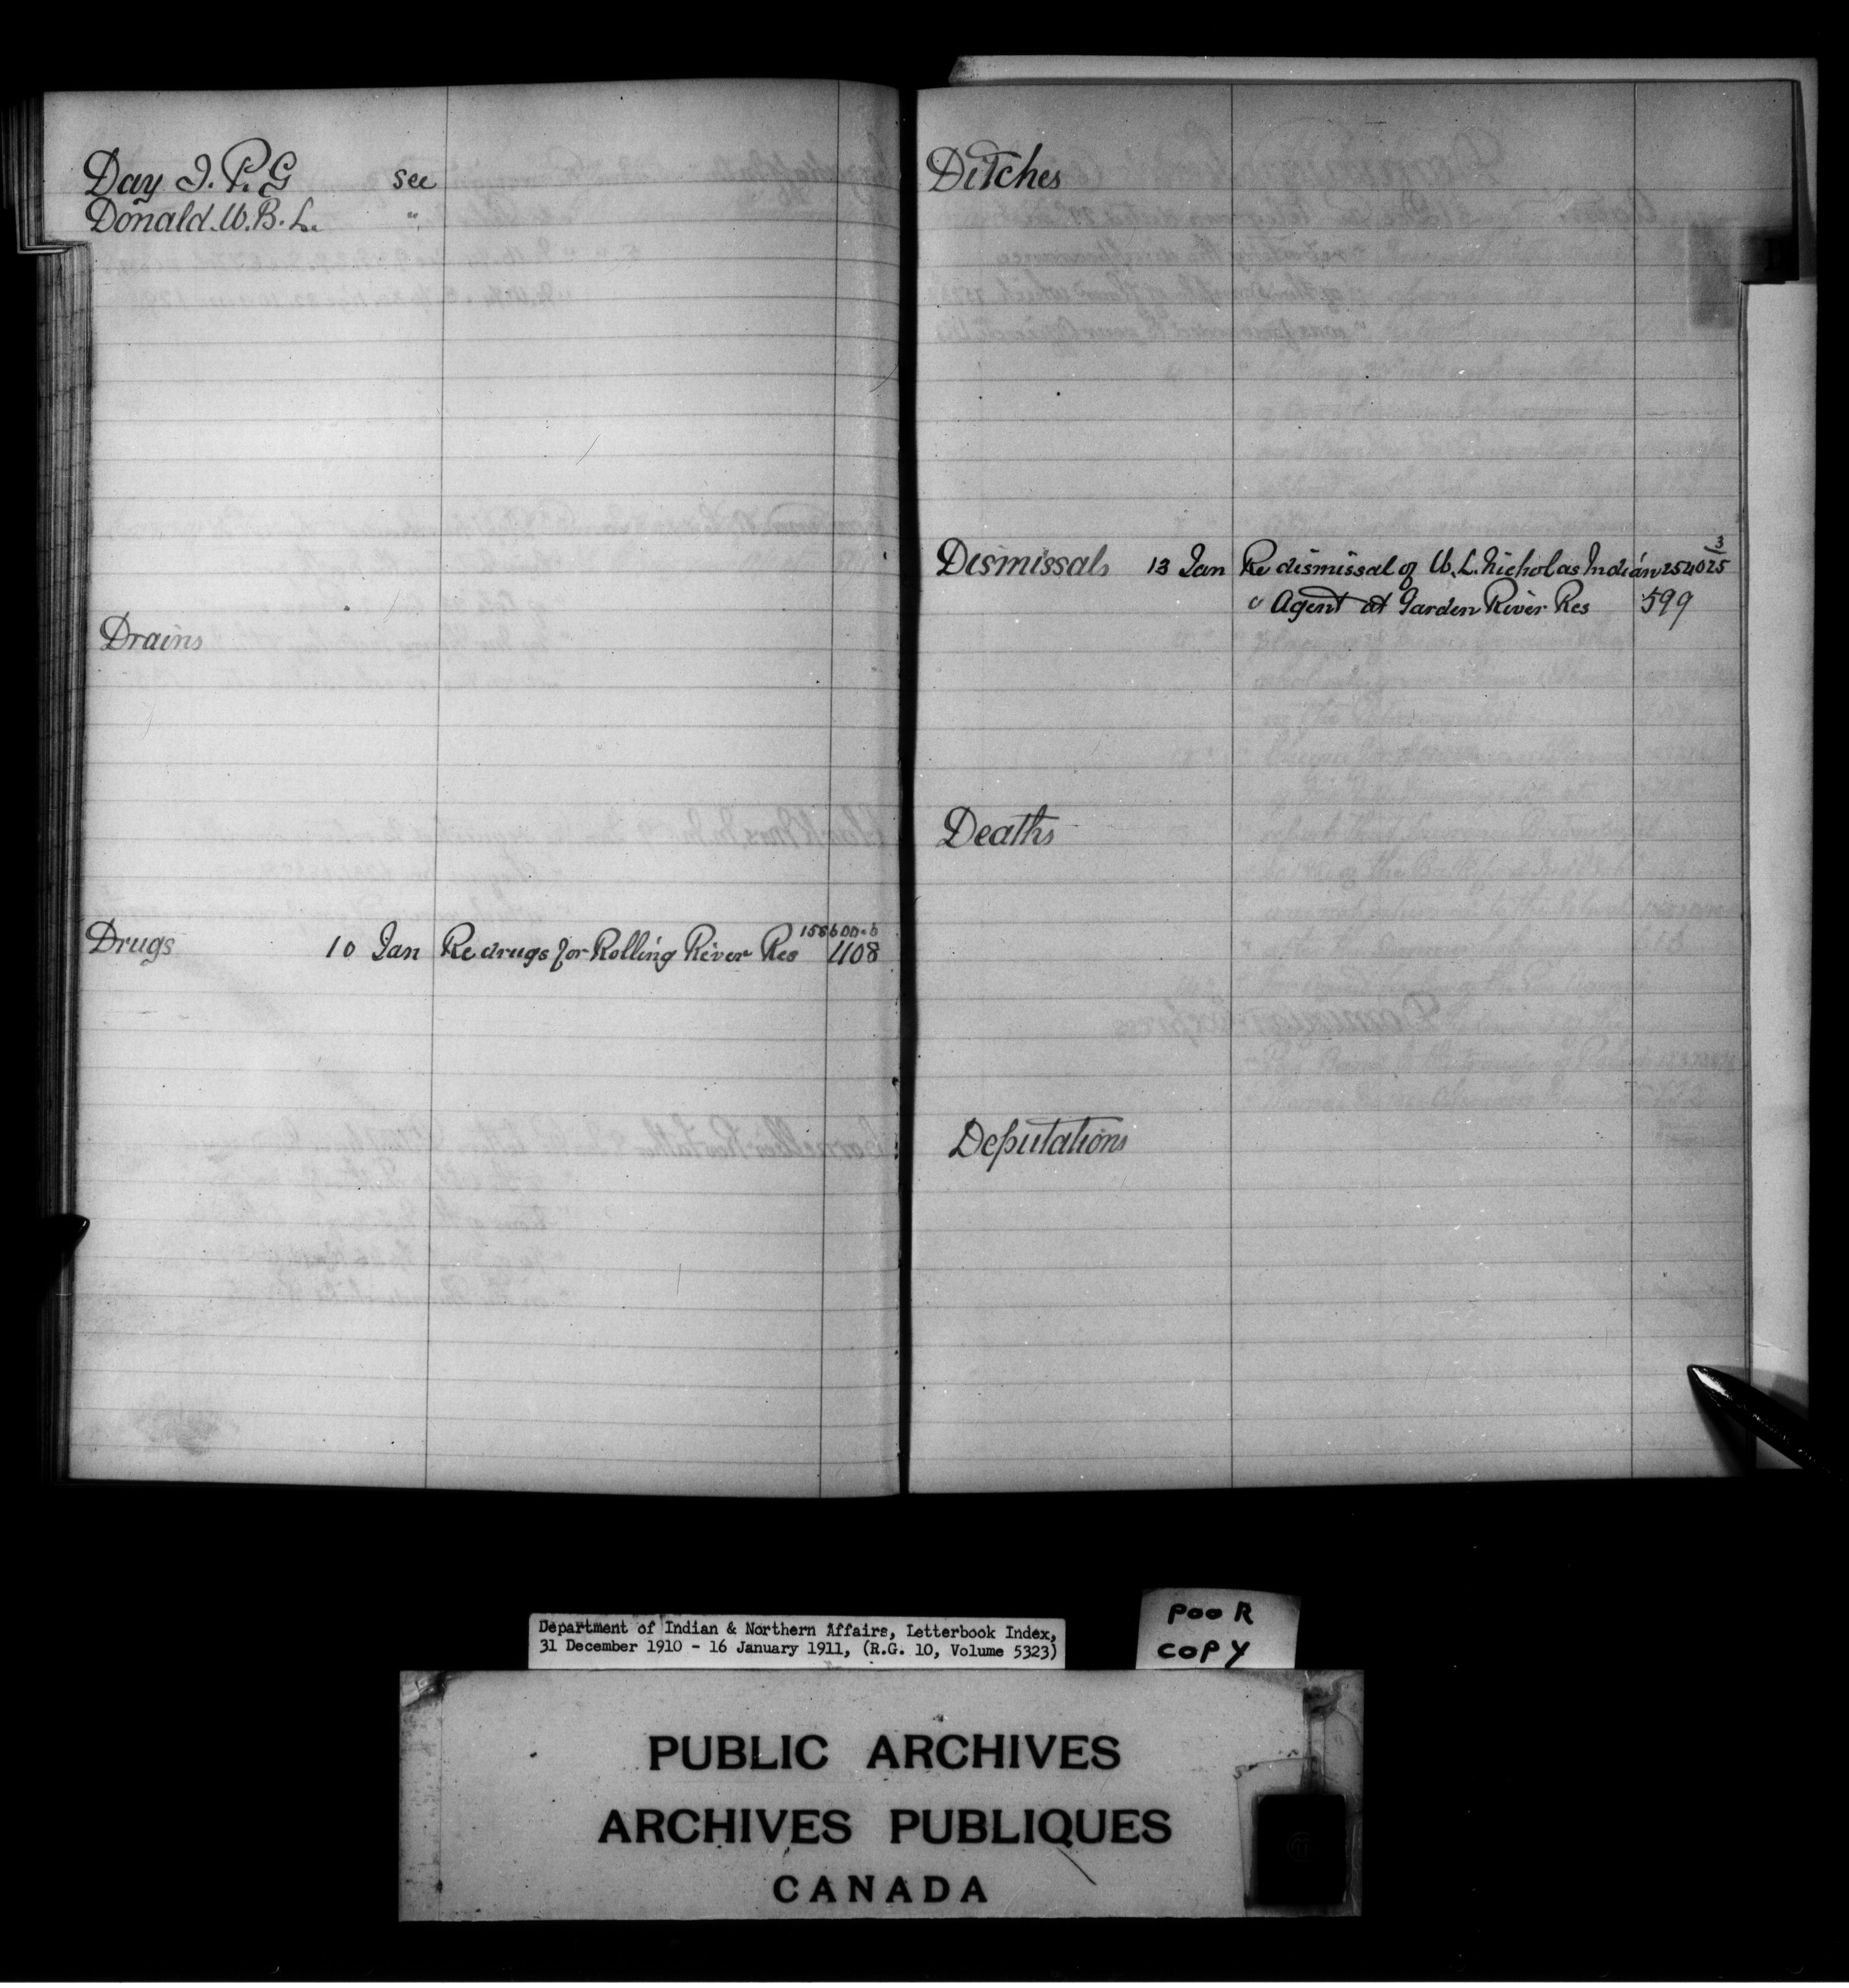 Day I. P. G see
Donald. W. B. L. "
Drains
Drugs 10 Jan Re drugs for Rolling River Res 408
Ditches
Dismissals 13 Jan Re dismissal of W. L. Nicholas Indian 254025
3
" Agent at Garden River Res 599
Deaths
Deputations
Department of Indian & Northern Affairs, Letterbook Index,
31 December 1910 - 16 January 1911, (R.G. 10, Volume 5323)
POOR
COPY
PUBLIC ARCHIVES
ARCHIVES PUBLIQUES
CANADA